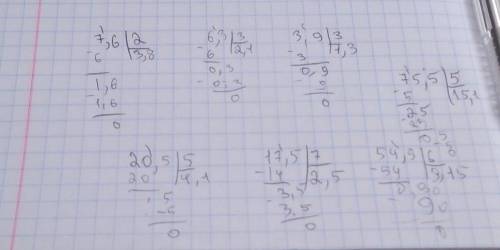 7,6 | 2
- 6 | 3,8
1,6
- 1,6
0
6,3 | 3
- 6 | 2,1
0,3
- 0,3
0
3,9 | 3
- 3 | 1,3
0,9
- 9
0
75,5 | 5
- 5 | 15,1
25
25
0,5
20,5 | 5
20 | 4,1
5
- 5
0
17,5 | 7
- 14 | 2,5
3,5
- 3,5
0
54,9 | 6
- 54 | 9,15
90
- 90
0